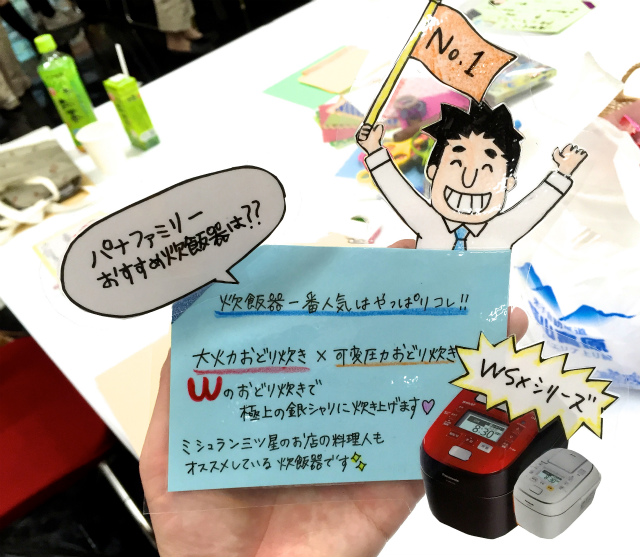 No.1
パナファミリー
おすすめ炊飯器は??
炊飯器一番人気はやっぱりコレ!!
大火力おどり炊き × 可変圧力おどり炊き
Wのおどり炊きで
極上の銀シャリに炊き上げます♡
ミシュラン三ツ星のお店の料理人も
オススメしている炊飯器です✨
WSXシリーズ
6:30